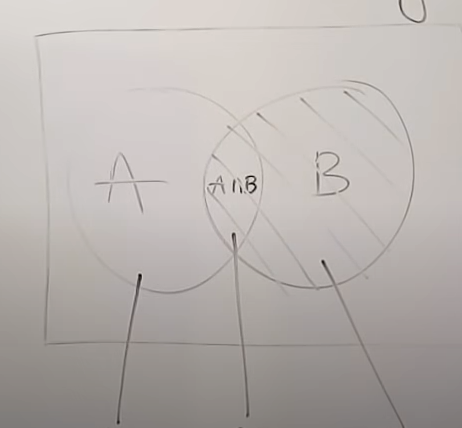 A A∩B B